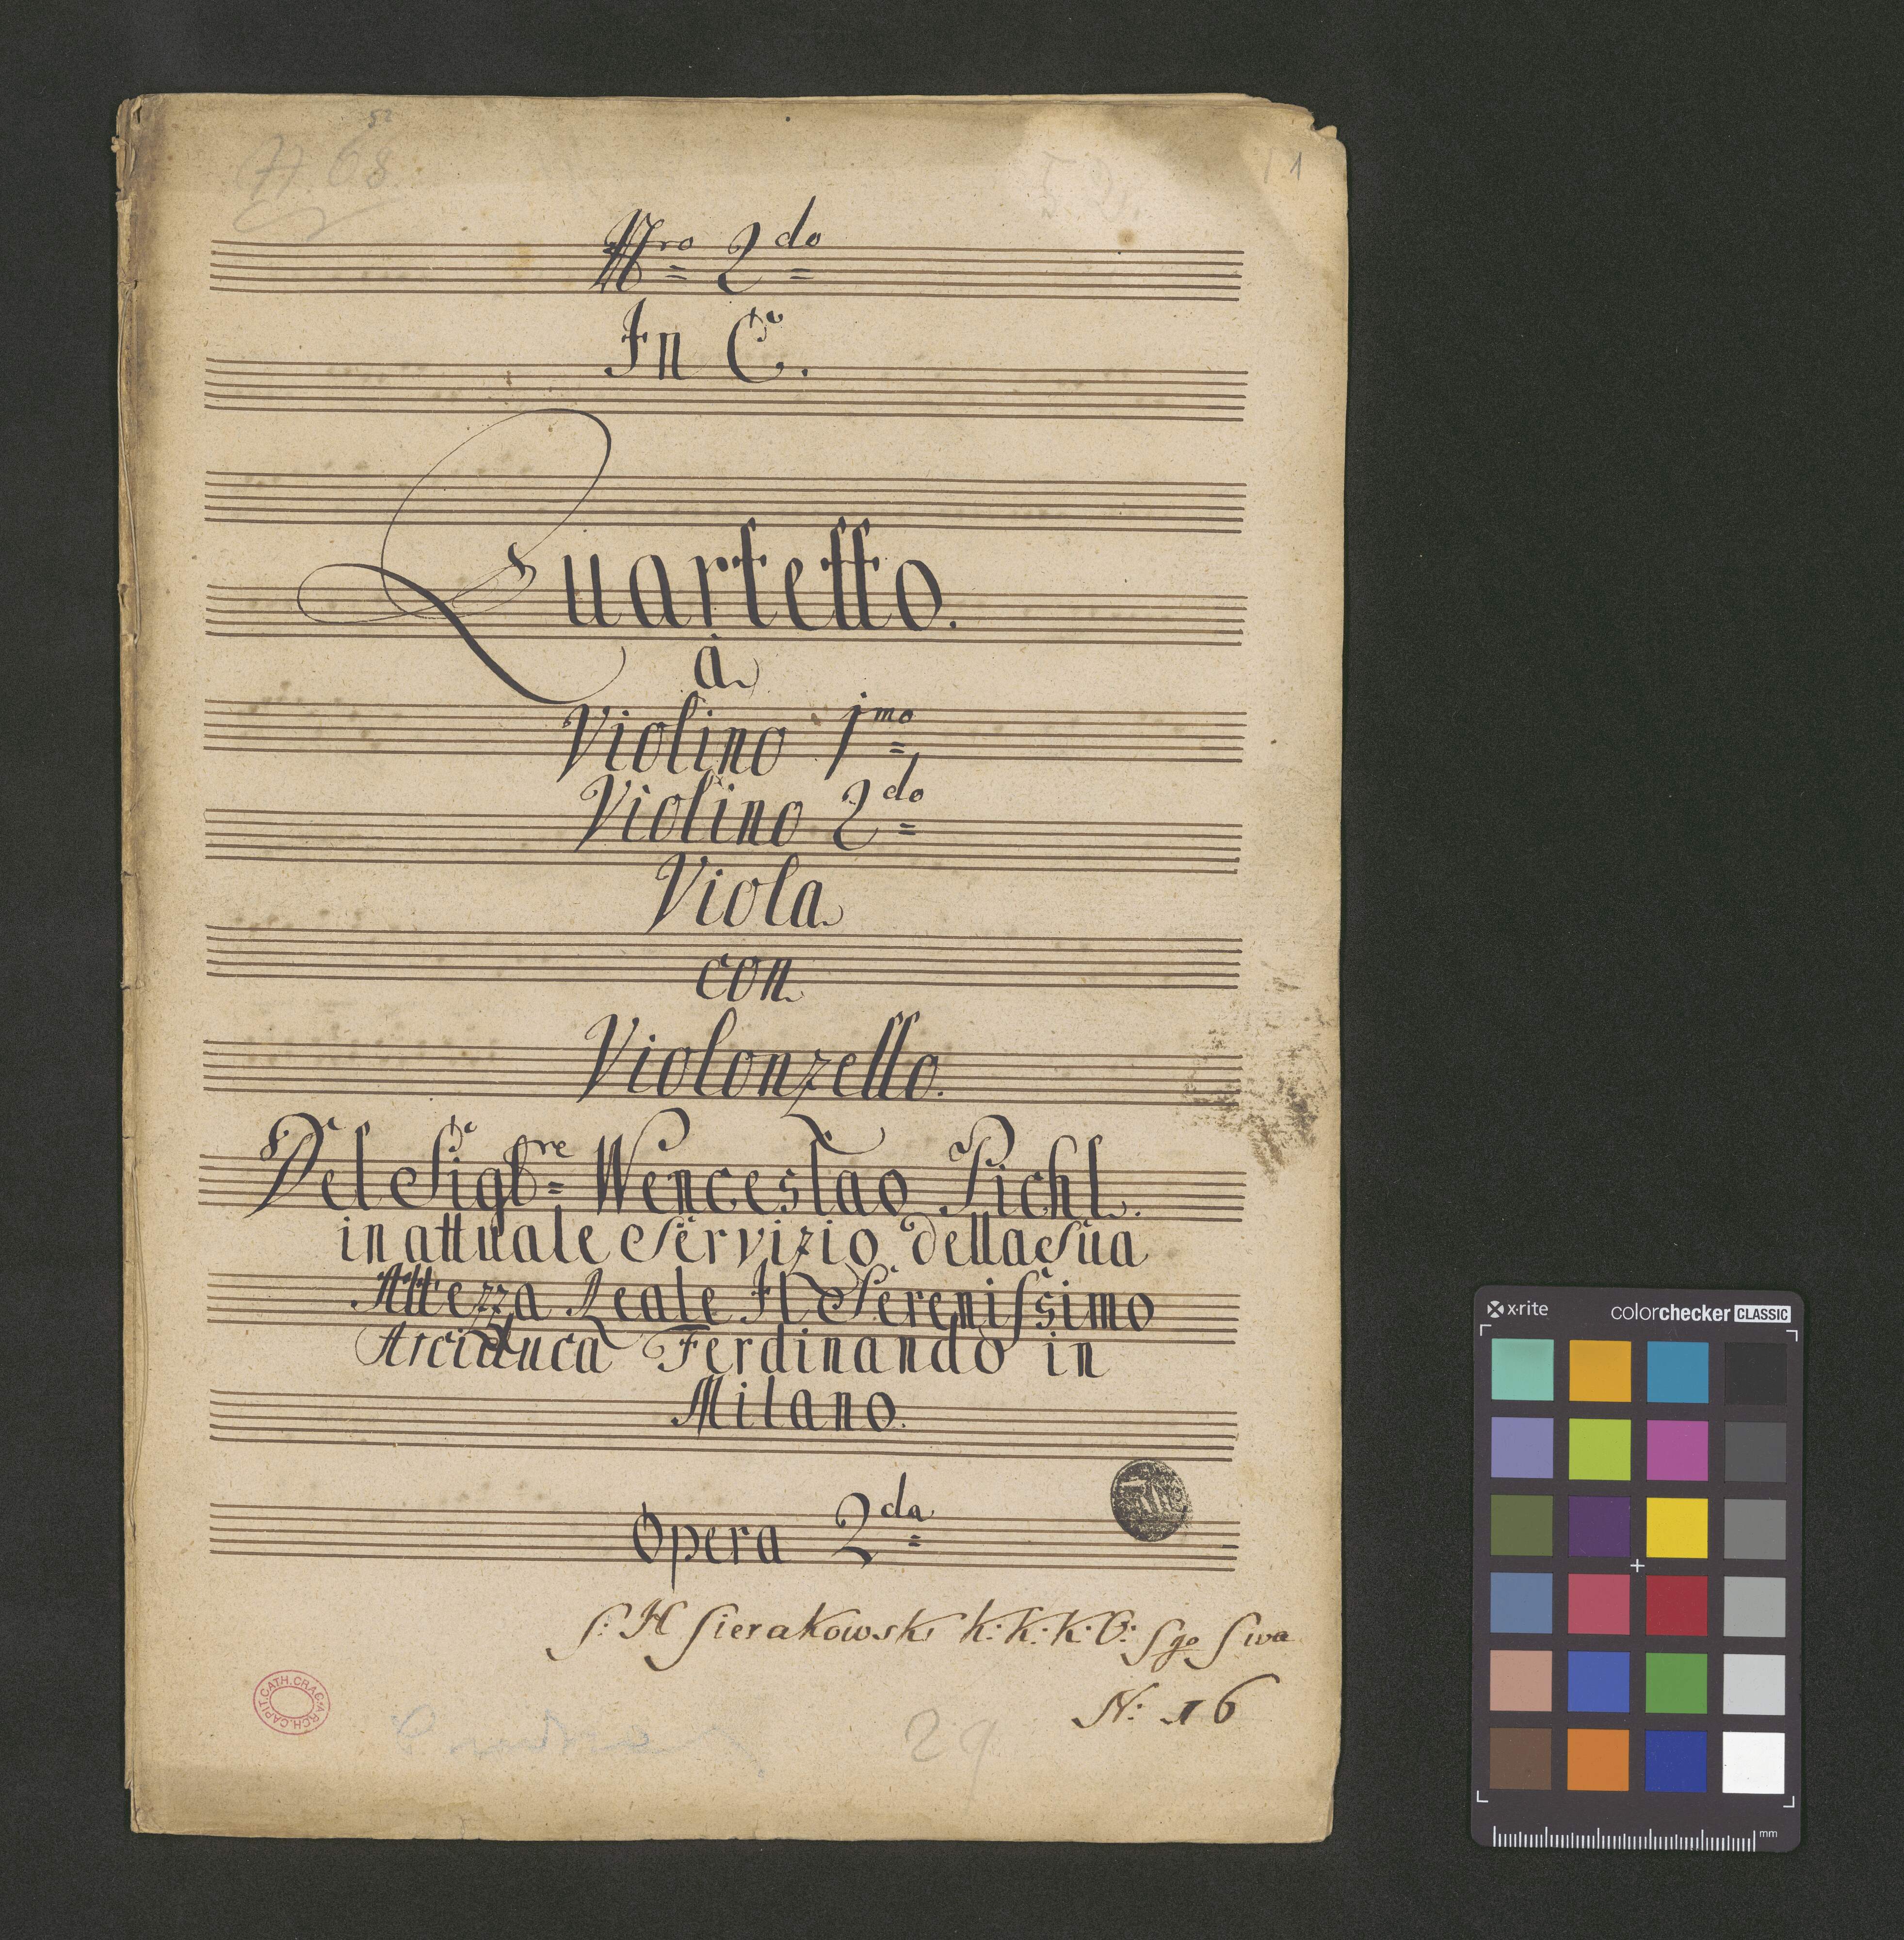 52
1
Nro 2do
In C.
Quartetto.
à
Violino 1mo
Violino 2do
Viola
con
Violonzello.
Del Sigre Wenceslao Pichl.
in attuale Servizio della Sua
Altezza Reale Il Serenissimo
Arciduca Ferdinando in
Milano.
Opera 2da
S: H Sierakowski K: K: K: O: Sgo Swa
N: 16
ARCH. CAPIT. CATH. CRAC.
29
x-rite colorchecker CLASSIC
mm